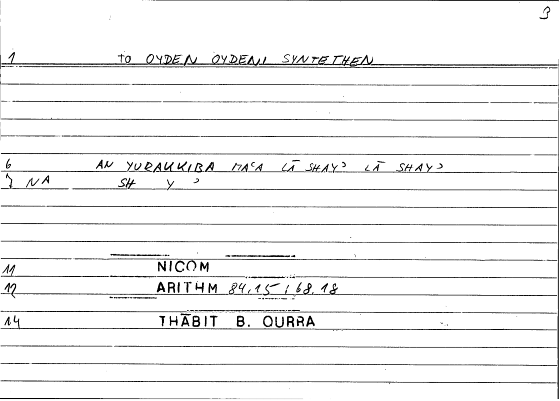 3
1 TO OYDEN OYDENI SYNTETHEN
6 AN YURAKKIBA MAʿA LĀ SHAYʾ LĀ SHAYʾ
7 NA SH Y ʾ
11 NICOM
12 ARITHM 84.15 ; 68.18
14 THĀBIT B. QURRA